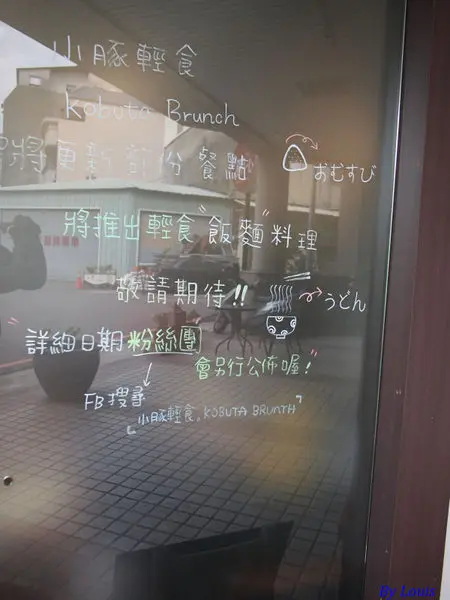 小豚輕食
Kobuta Brunch
將更新部份餐點
おむすび
將推出輕食"飯麵"料理
敬請期待!!
うどん
"詳細日期粉絲團
會另行公佈喔!"
FB搜尋
「小豚輕食。KOBUTA BRUNCH」
By Louis